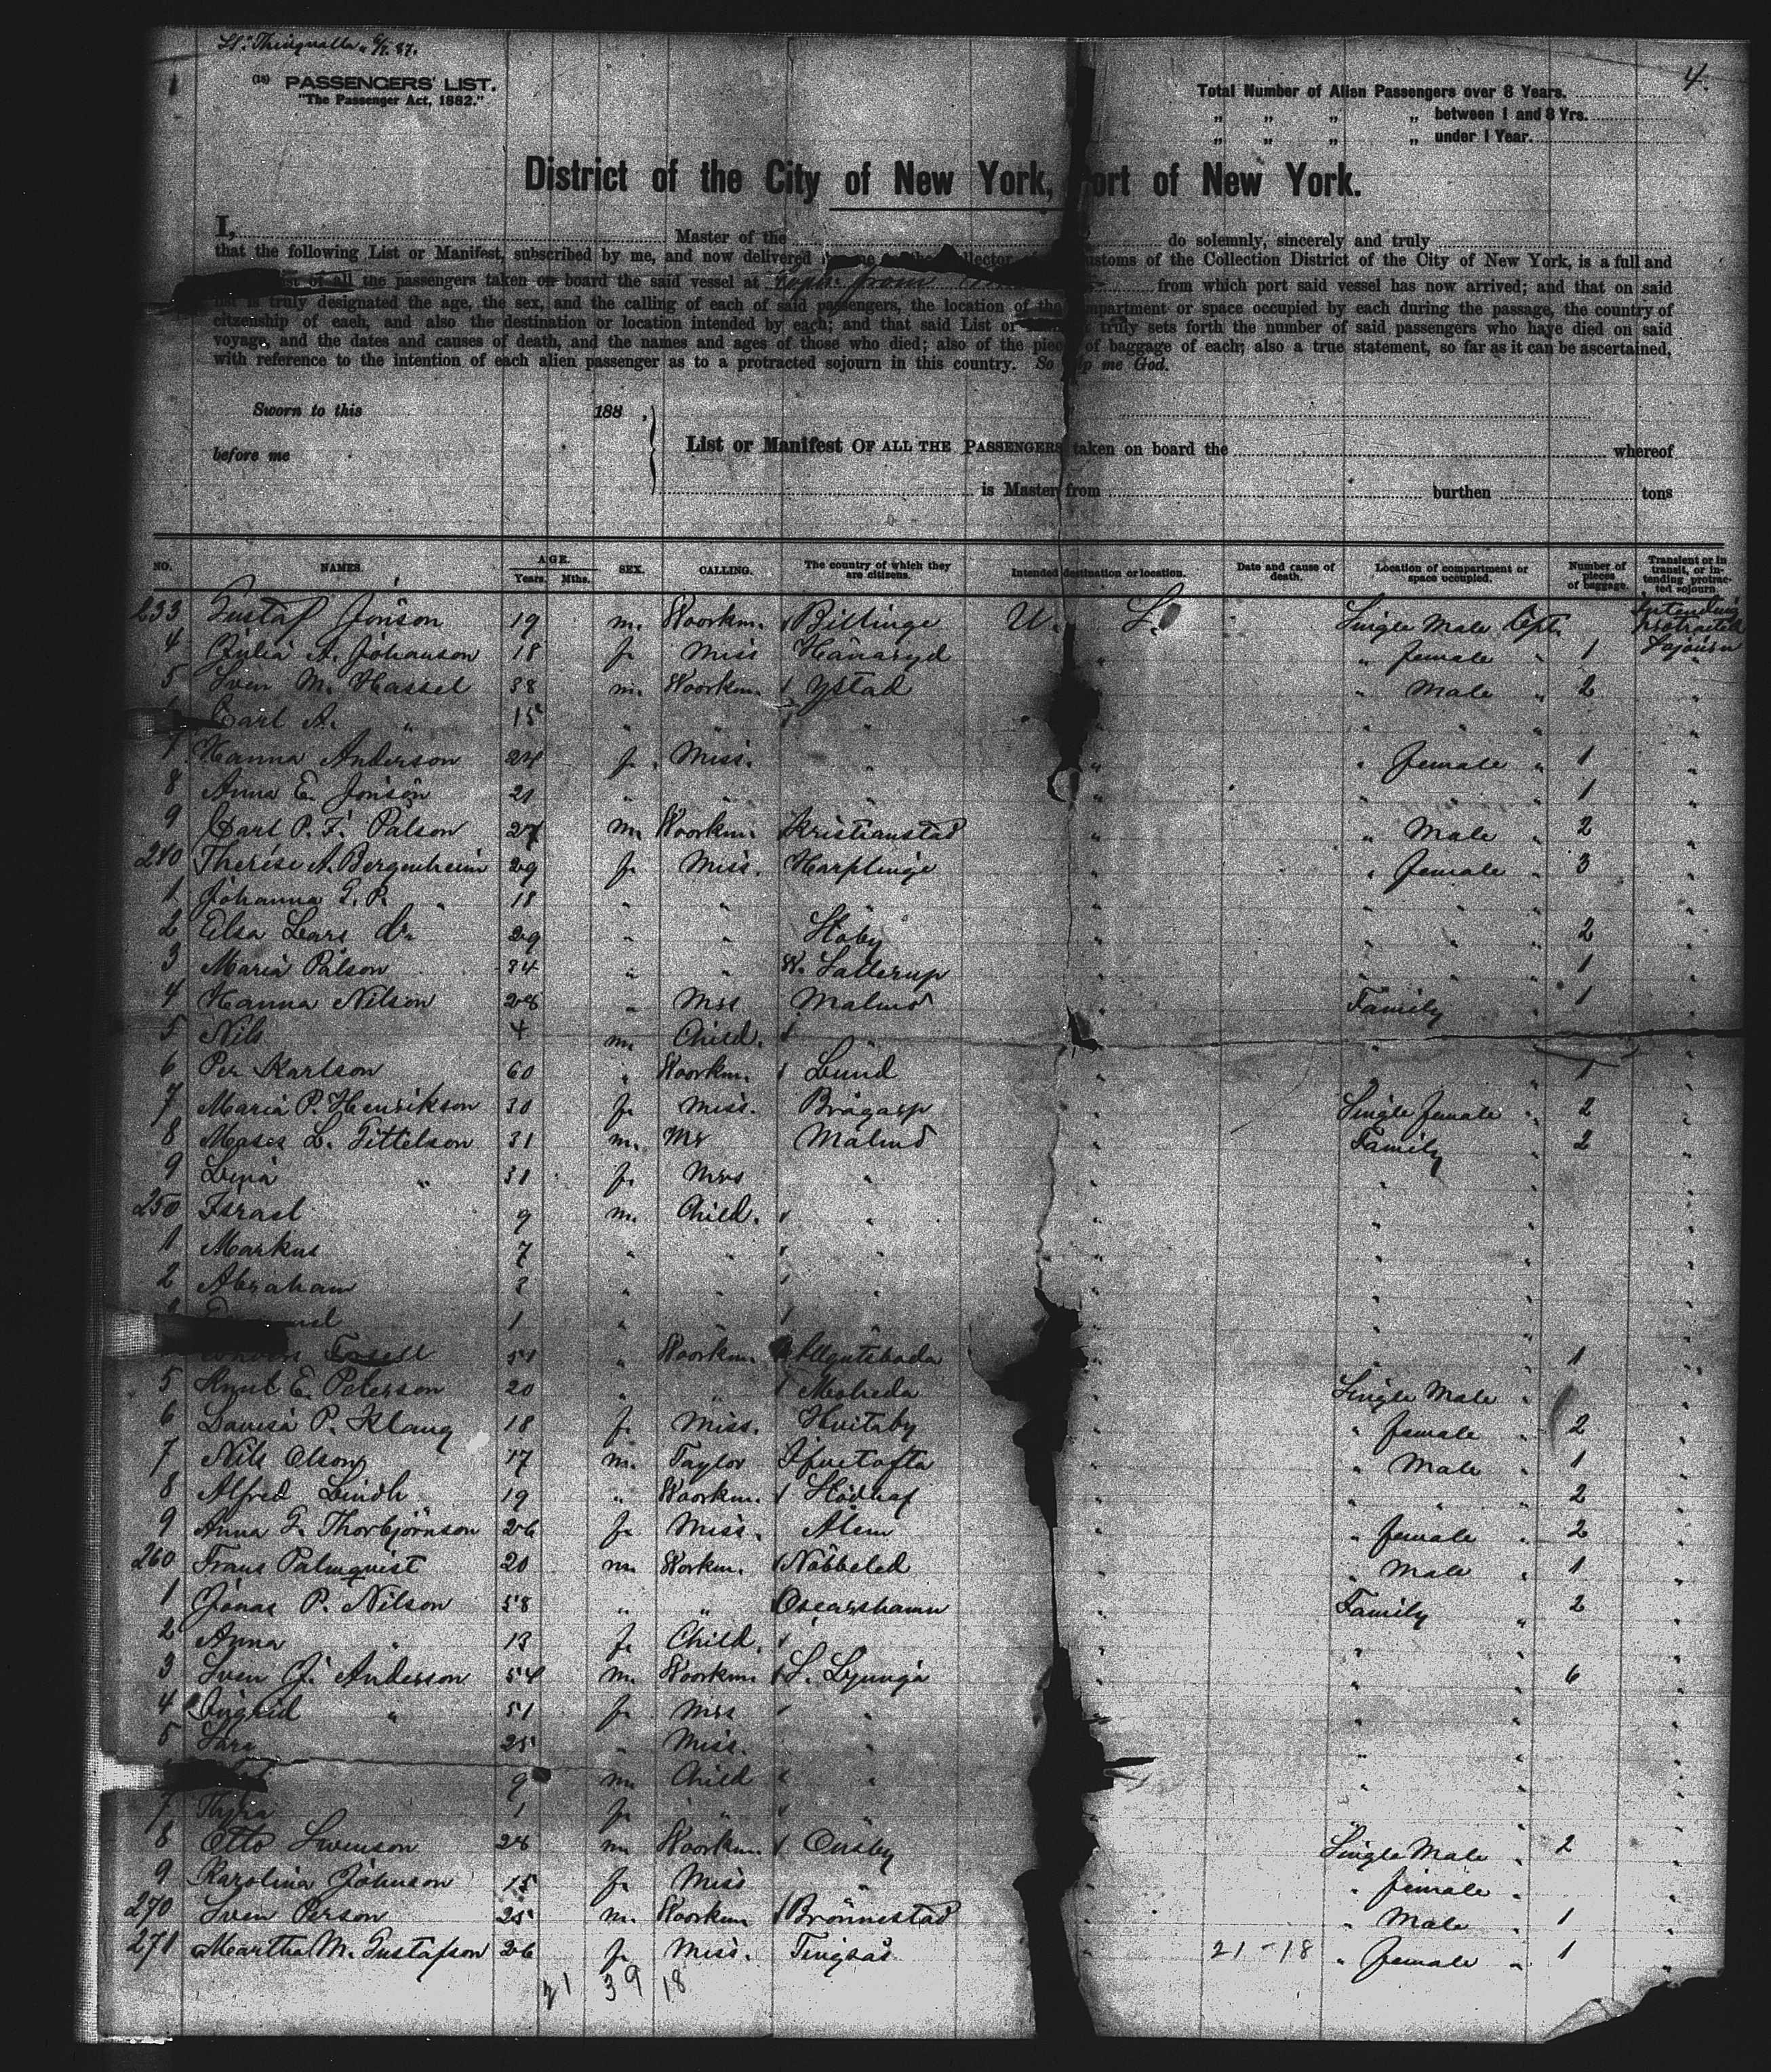 SS. Thingvalla 6/7. 87.
4.
(18) PASSENGERS' LIST.
"The Passenger Act, 1882."
Total Number of Alien Passengers over 8 Years.
„ „ „ „ between 1 and 8 Yrs.
„ „ „ „ under 1 Year.
District of the City of New York, Port of New York.
I, Master of the do solemnly, sincerely and truly
that the following List or Manifest, subscribed by me, and now delivered Collector Customs of the Collection District of the City of New York, is a full and
list of all the passengers taken on board the said vessel at from from which port said vessel has now arrived; and that on said
list is truly designated the age, the sex, and the calling of each of said passengers, the location of the compartment or space occupied by each during the passage, the country of
citzenship of each, and also the destination or location intended by each; and that said List or truly sets forth the number of said passengers who have died on said
voyage, and the dates and causes of death, and the names and ages of those who died; also of the pieces of baggage of each; also a true statement, so far as it can be ascertained,
with reference to the intention of each alien passenger as to a protracted sojourn in this country. So help me God.
Sworn to this 188 ,
before me
List or Manifest OF ALL THE PASSENGERS taken on board the whereof
is Master from burthen tons
NO. NAMES. AGE. Years. Mths. SEX. CALLING. The country of which they are citizens. Intended destination or location. Date and cause of death. Location of compartment or space occupied. Number of pieces of baggage. Transient or in transit, or intending protracted sojourn.
233 Gustaf Jönson 19 m. Woorkm. Billinge U. S. Single Male Cpt. Intending protracted Sojourn
4 Julia A. Johanson 18 f. Miss Hånaryd " " female " 1 "
5 Sven M. Hassel 38 m. Woorkm. Ystad " Male " 2 "
Carl A. " 15 " " " " " " " "
7 Hanna Anderson 24 f. Miss. " " " female " 1 "
8 Anna E. Jönson 21 " " " " " " " 1 "
9 Carl P. F. Pålson 27 m. Woorkm. Kristianstad " " Male " 2 "
240 Therése A. Bergenheim 29 f. Miss. Harplinge " " female " 3 "
1 Johanna G. P. " 18 " " " " " " " "
2 Elsa Lars dr 29 " " Stoby " " " " 2 "
3 Maria Pålson 34 " " W. Sallerup " " " " 1 "
4 Hanna Nilson 28 " Mrs Malmö " Family " 1 "
5 Nils 4 m. Child. " " " " "
6 Per Karlson 60 " Woorkm. Lund " " " 1 "
7 Maria P. Henrikson 30 f. Miss. Brågarp " Single female " 2 "
8 Moses L. Tittelson 31 m. Mr Malmö " Family " 2 "
9 Lina " 31 f. Mrs " " " " "
250 Israel 9 m. Child. " " " " "
1 Markus 7 " " " " " " "
2 Abraham 3 " " " " " " "
1 " " " " "
Forsell 51 " Woorkm. Elgutsboda " " " 1 "
5 Knut E. Peterson 20 " " Moheda " Single Male " "
6 Lovisa P. Klang 18 f. Miss. Hvitaby " " female " 2 "
7 Nils Olson 17 m. Taylor Ifvetofta " " Male " 1 "
8 Alfred Lindh 19 " Woorkm. " " " " 2 "
9 Anna G. Thorbjörnson 26 f. Miss. Ålem " " female " 2 "
260 Frans Palmquist 20 m. Workm. Nöbbeled " " Male " 1 "
1 Jonas P. Nilson 58 " " Oscarshamn " Family " 2 "
2 Anna " 13 f. Child. " " " "
3 Sven J. Anderson 54 m. Woorkm. S. Ljunga " " " 6 "
4 Ingrid " 51 f. Mrs " " " " "
5 Sara 25 " Miss. " " " " "
9 m. Child " " " " "
7 Thyra 1 f. " " " " " "
8 Otto Swenson 28 m. Woorkm. Ousby " Single Male " 2 "
9 Karolina Johnson 15 f. Miss " " " female " "
270 Sven Person 25 m. Woorkm Brönnestad " " Male " 1 "
271 Martha M. Gustafson 26 f. Miss. Tingsås " 21-18 " female " 1 "
21 39 18